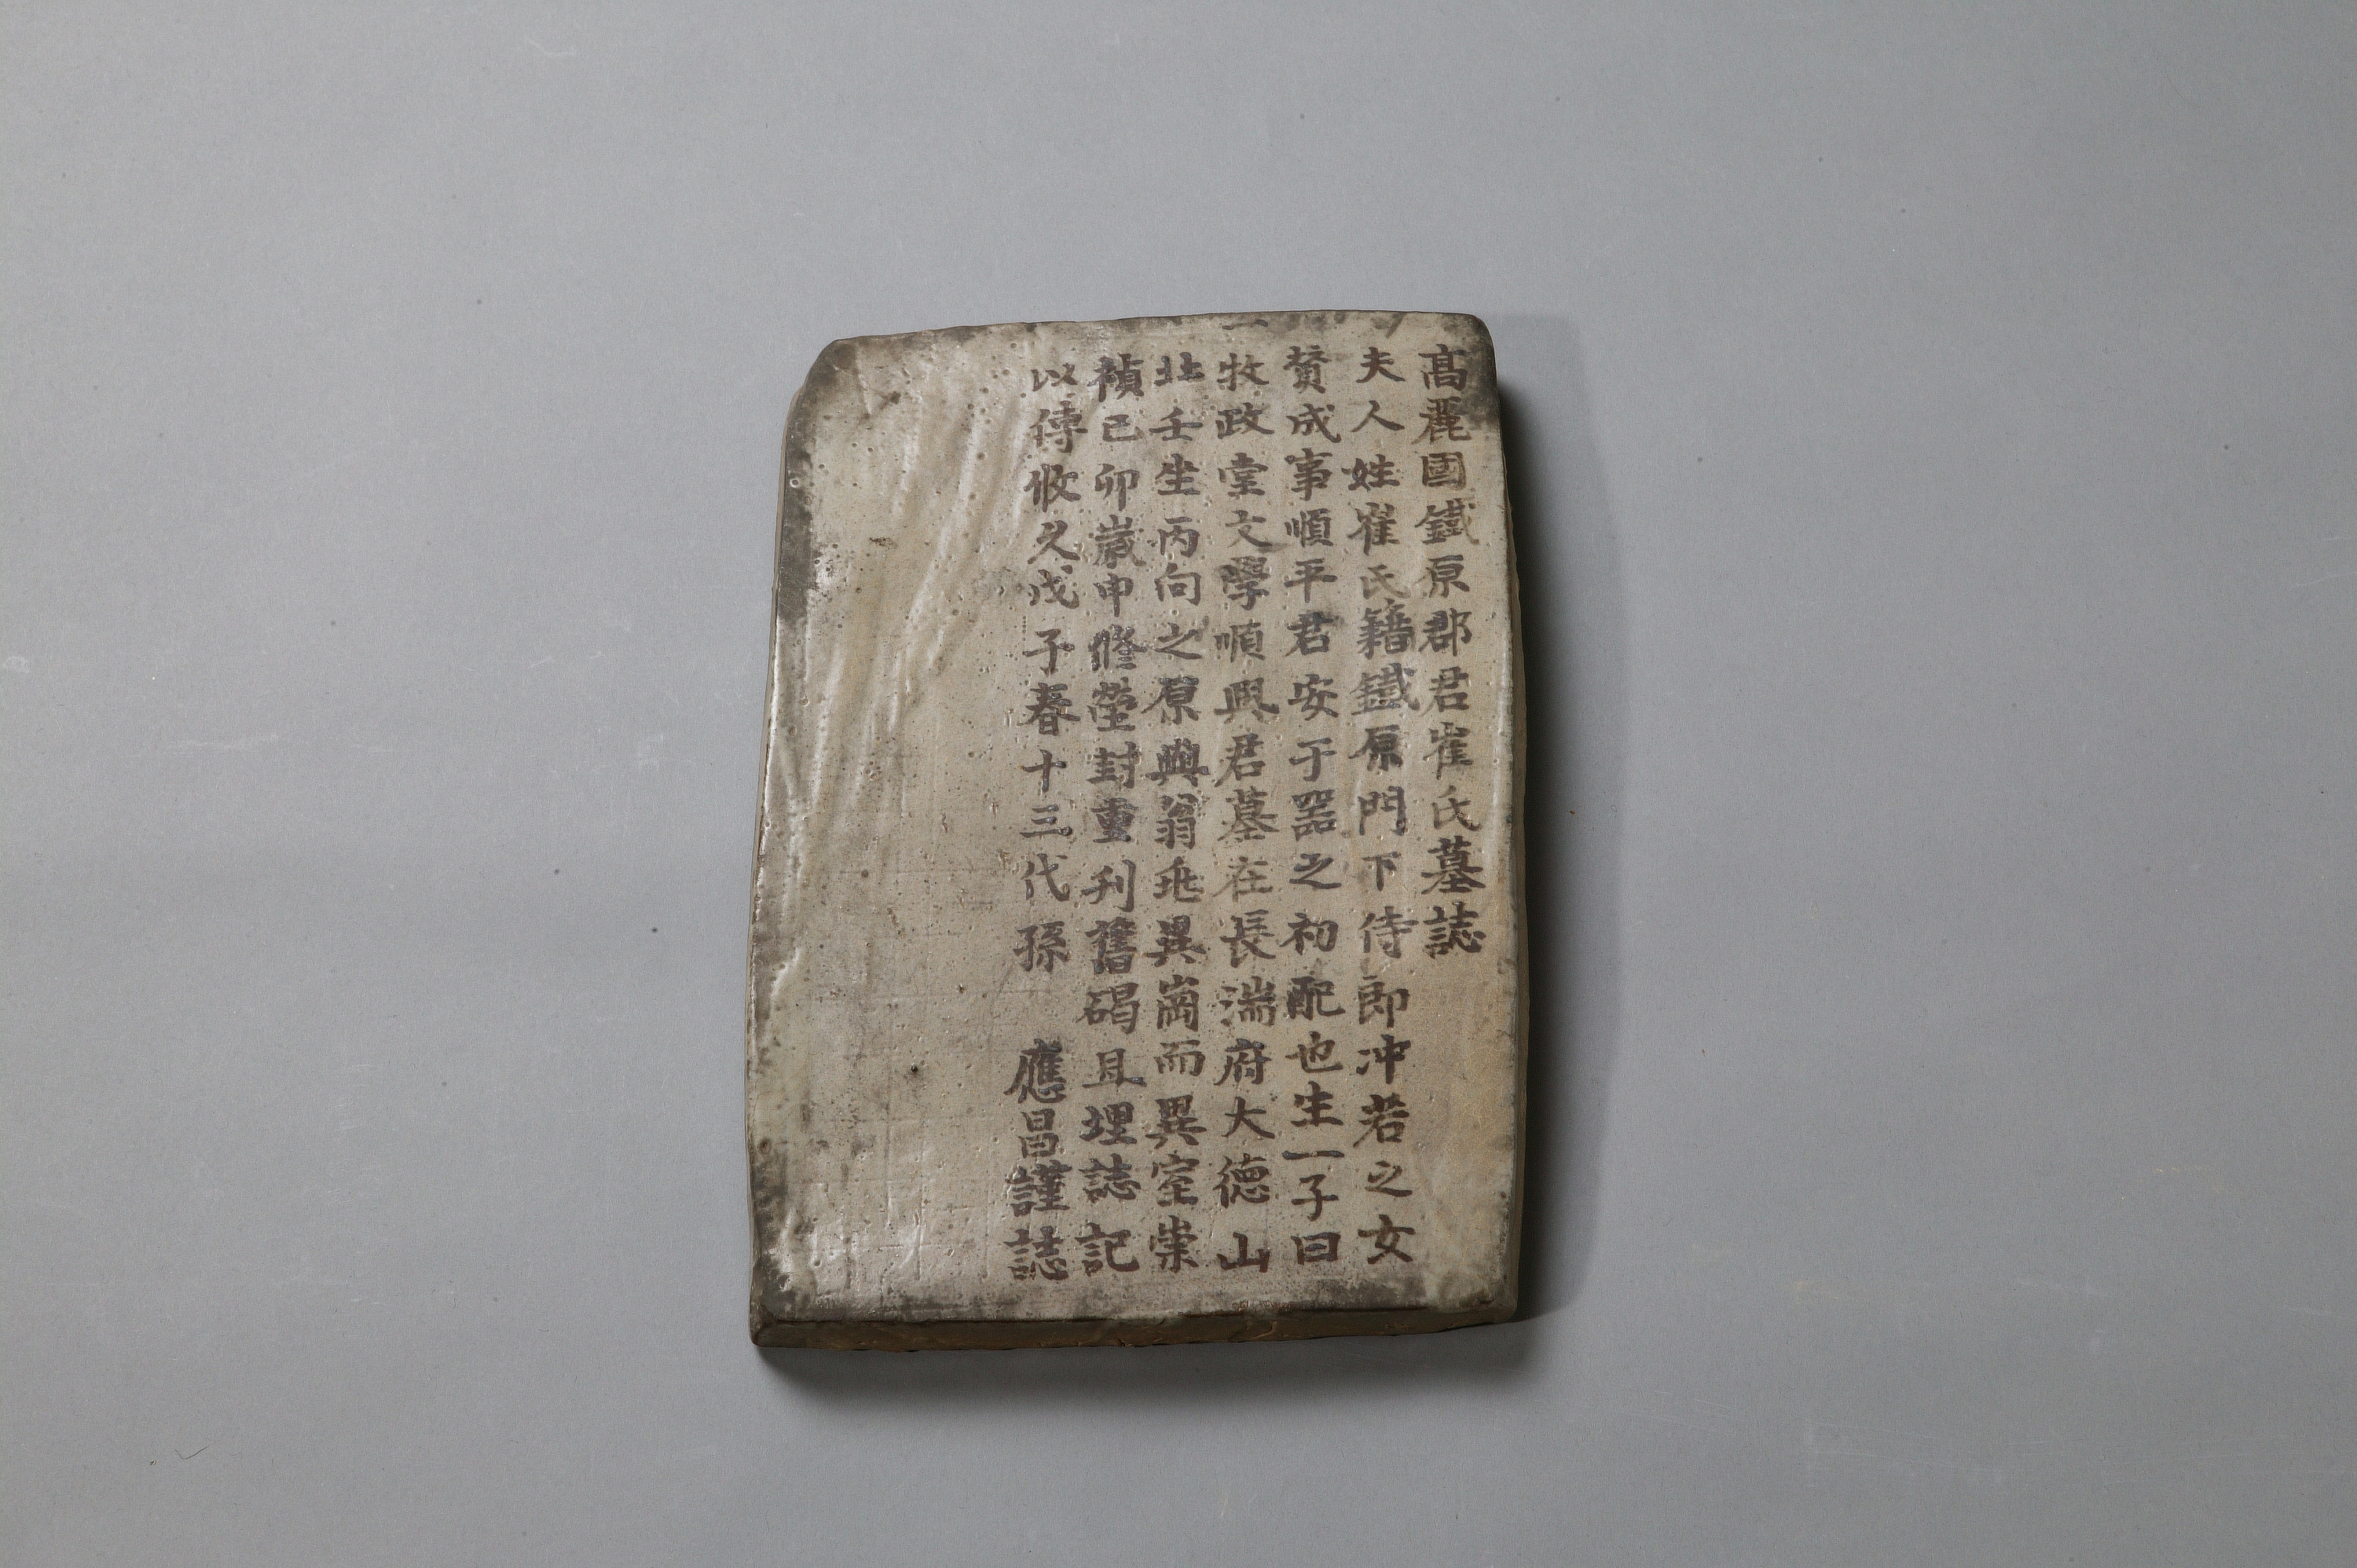 高麗國鐵原郡君崔氏墓誌
夫人姓崔氏籍鐵原門下侍郎冲若之女
賛成事順平君安于器之初配也生一子曰
牧政堂文學順興君墓在長湍府大德山
北壬坐丙向之原與翁兆異崗而異室崇
禎己卯歲申修塋封重刋舊碣且埋誌記
以傳攸久戊子春十三代孫 應昌謹誌